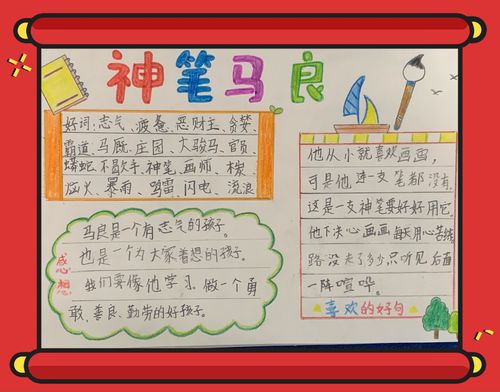 神笔马良
好词:志气、疲惫、恶财主、贪婪、
霸道、马厩、庄园、大骏马、官员、
蟒蛇、不歇手、神笔、画师、木炭
火、暴雨、鸣雷、闪电、流浪
马良是一个有志气的孩子。
也是一个为大家着想的孩子。
我们要像他学习。做一个勇
敢、善良、勤劳的好孩子。
感想
他从小就喜欢画画，
可是他连一支笔都没有。
这是一支神笔要好好用它。
他下决心画画每天用心苦练
路没走了多少只听见后面
一阵喧哗。
喜欢的好句